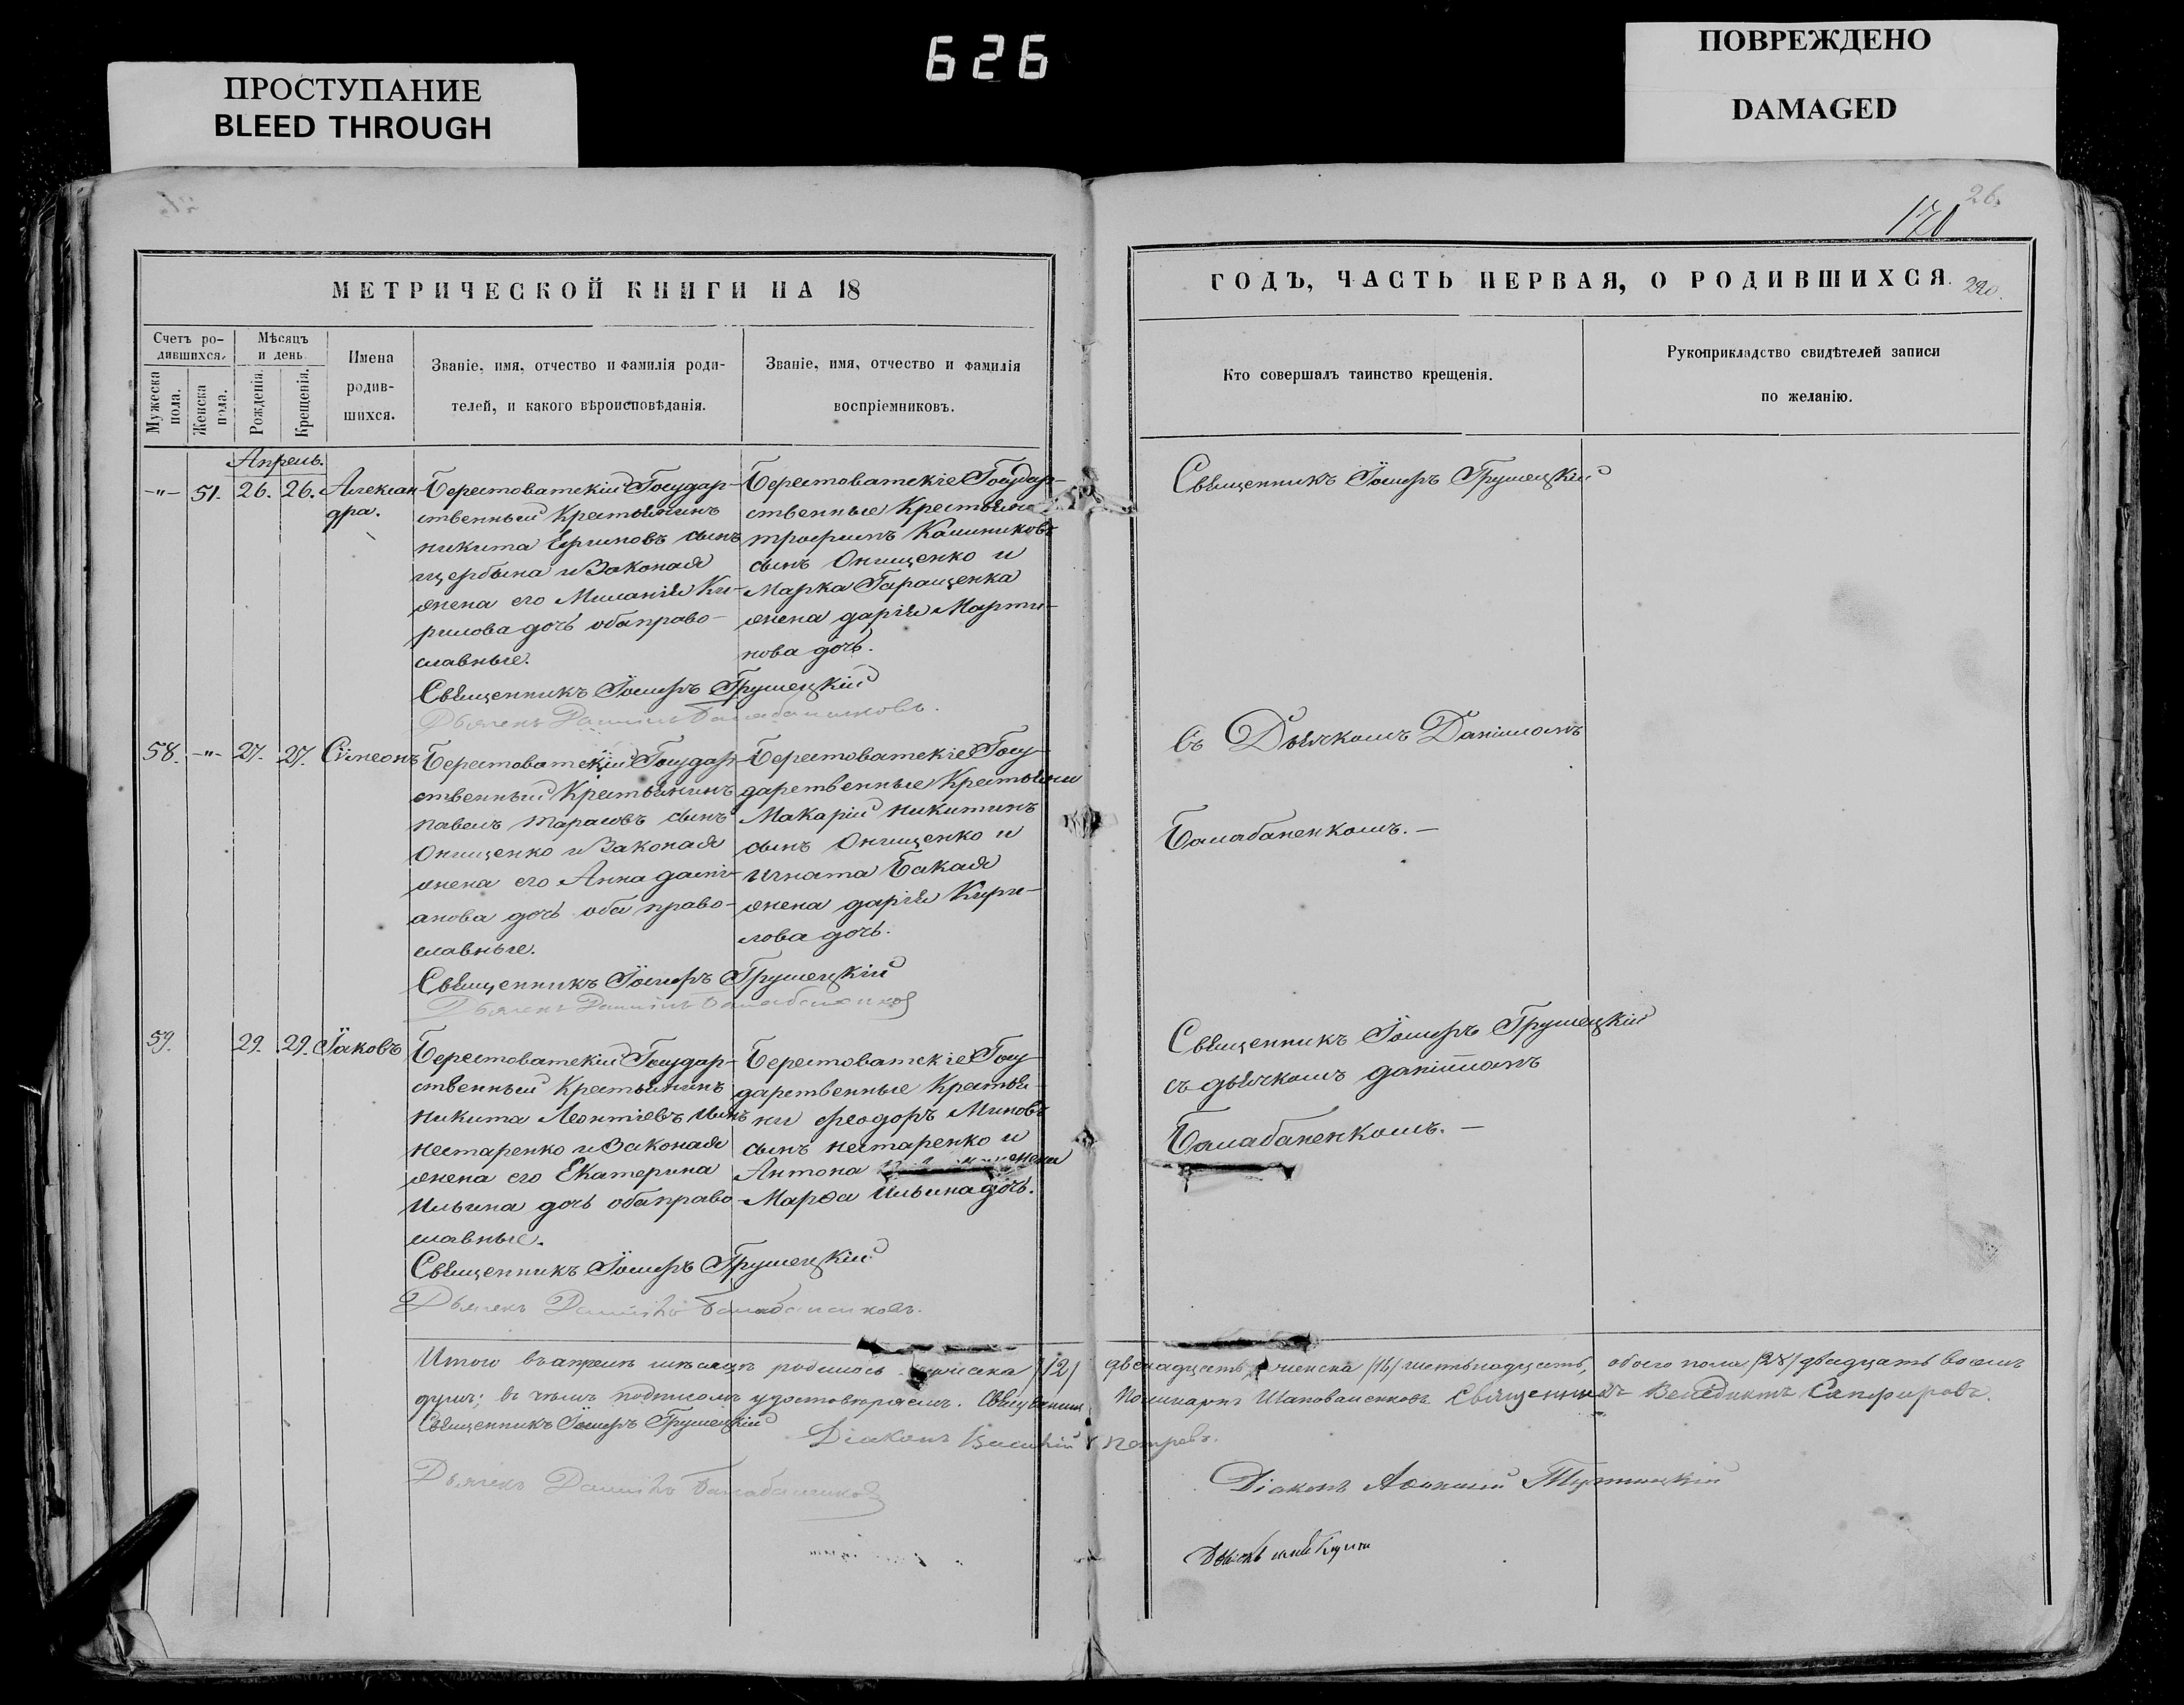 626
ПРОСТУПАНИЕ
BLEED THROUGH
ПОВРЕЖДЕНО
DAMAGED
26.
170
МЕТРИЧЕСКОЙ КНИГИ НА 18
ГОДЪ, ЧАСТЬ ПЕРВАЯ, О РОДИВШИХСЯ.
220.
Счетъ ро-
дившихся.
Мужеска
пола.
Женска
пола.
Мѣсяцъ
и день.
Рожденія.
Крещенія.
Имена
родив-
шихся.
Званіе, имя, отчество и фамилія роди-
телей, и какого вѣроисповѣданія.
Званіе, имя, отчество и фамилія
воспріемниковъ.
Кто совершалъ таинство крещенія.
Рукоприкладство свидѣтелей записи
по желанію.
Апрель.
-"- 51. 26. 26. Алексан
дра.
Берестоватскій Государ-
ственный Крестьянинъ
никита Ефимовъ сынъ
щербына и Законая
жена его Миланія Ки-
рилова дочь оба право-
славные.
Священникъ Іосифъ Грушецкій
Дьячекъ Даніилъ Балабаненковъ.
Берестоватскіе Государ-
ственные Крестьяне
трофимъ Калиниковъ
сынъ Онищенко и
Марка Гаращенка
жена дарія Марти-
нова дочь.
Священникъ Іосифъ Грушецкій
съ Дьячкомъ Даніиломъ
Балабаненкомъ. –
58. -"- 27. 27. Сімеонъ
Берестоватскій Государ-
ственный Крестьянинъ
павелъ тарасовъ сынъ
Онищенко и Законая
жена его Анна дами-
анова дочь оба право-
славные.
Священникъ Іосифъ Грушецкій
Дьячекъ Даніилъ Балабаненковъ
Берестоватскіе Госу-
дарственные Крестьяни
Макарій никитинъ
сынъ Онищенко и
игната Бакая
жена дарія Кири-
лова дочь.
59. 29. 29. Іаковъ
Берестоватскій Государ-
ственный Крестьянинъ
никита Леонтіевъ сынъ
нестаренко и Законая
жена его Екатерина
Ильина дочь оба право-
славные.
Священникъ Іосифъ Грушецкій
Дьячекъ Даніилъ Балабаненковъ.
Берестоватскіе Госу-
дарственные Крестья-
ни феодоръ Миновъ
сынъ нестаренко и
Антона жена
Марѳа Ильина дочь.
Священникъ Іосифъ Грушецкій
съ дьячкомъ даніиломъ
Балабаненкомъ. –
Итого въ апреле месяце родилось мужеска /12/ двенадцать, женска /16/ шестьнадцать, обоего пола /28/ двадцать восемь
душъ; въ чемъ подписомъ удостоверяемъ. Священникъ Священникъ Венедиктъ Сапфировъ.
Священникъ Іосифъ Грушецкій
Діаконъ Василій Петровъ.
Дьячекъ Даніилъ Балабаненковъ
Діаконъ